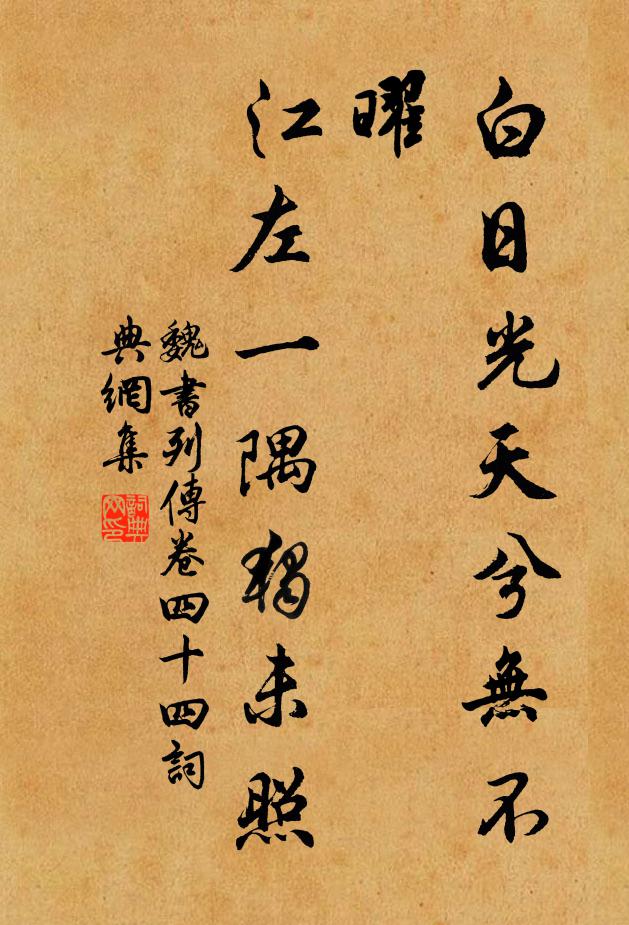 白日光天兮無不
曜
江左一隅獨未照
魏書列傳卷四十四詞
典網集
詞典網印